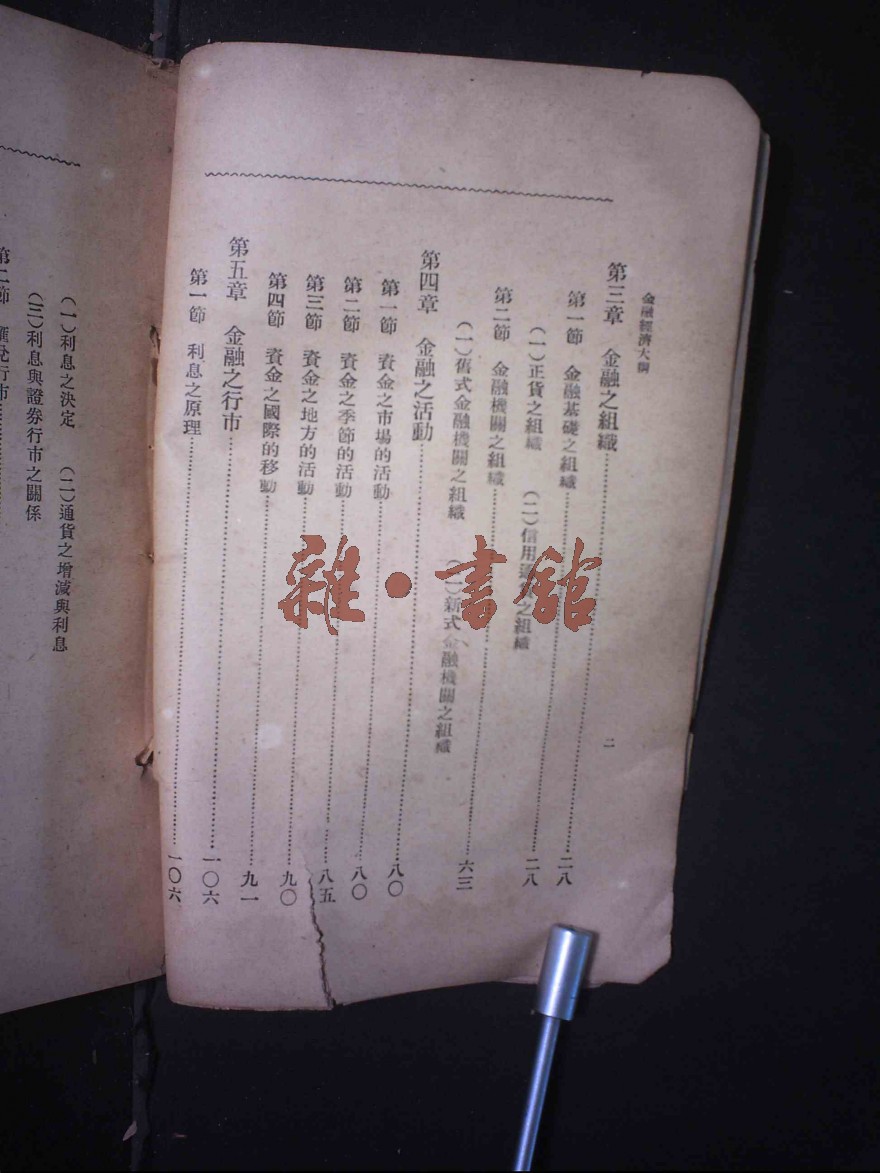 金融經濟大綱
二
第三章 金融之組織……二八
第一節 金融基礎之組織……二八
(一)正貨之組織 (二)信用通貨之組織
第二節 金融機關之組織……六三
(一)舊式金融機關之組織 (二)新式金融機關之組織
第四章 金融之活動……八〇
第一節 資金之市場的活動……八〇
第二節 資金之季節的活動……八五
第三節 資金之地方的活動……九〇
第四節 資金之國際的移動……九一
第五章 金融之行市……一〇六
第一節 利息之原理……一〇六
(一)利息之決定 (二)通貨之增減與利息
(三)利息與證券行市之關係
第二節 匯兌行市……
雜·書館